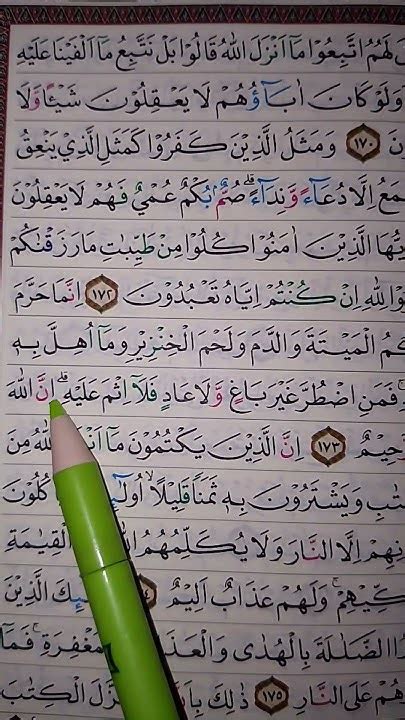 لَهُمُ اتَّبِعُوْا مَآ اَنْزَلَ اللّٰهُ قَالُوْا بَلْ نَتَّبِعُ مَآ اَلْفَيْنَا عَلَيْهِ
اَوَلَوْ كَانَ اٰبَاۤؤُهُمْ لَا يَعْقِلُوْنَ شَيْـًٔا وَّلَا
١٧٠ وَمَثَلُ الَّذِيْنَ كَفَرُوْا كَمَثَلِ الَّذِيْ يَنْعِقُ
اِلَّا دُعَاۤءً وَّنِدَاۤءً ۗ صُمٌّ ۢ بُكْمٌ عُمْيٌ فَهُمْ لَا يَعْقِلُوْنَ
الَّذِيْنَ اٰمَنُوْا كُلُوْا مِنْ طَيِّبٰتِ مَا رَزَقْنٰكُمْ
لِلّٰهِ اِنْ كُنْتُمْ اِيَّاهُ تَعْبُدُوْنَ ١٧٢ اِنَّمَا حَرَّمَ
الْمَيْتَةَ وَالدَّمَ وَلَحْمَ الْخِنْزِيْرِ وَمَآ اُهِلَّ بِهٖ
فَمَنِ اضْطُرَّ غَيْرَ بَاغٍ وَّلَا عَادٍ فَلَآ اِثْمَ عَلَيْهِ ۗ اِنَّ اللّٰهَ
١٧٣ اِنَّ الَّذِيْنَ يَكْتُمُوْنَ مَآ اللّٰهُ مِنَ
وَيَشْتَرُوْنَ بِهٖ ثَمَنًا قَلِيْلًاۙ
اِلَّا النَّارَ وَلَا يُكَلِّمُهُمُ الْقِيٰمَةِ
وَلَهُمْ عَذَابٌ اَلِيْمٌ الَّذِيْنَ
الضَّلٰلَةَ بِالْهُدٰى وَالْعَذَابَ فَمَآ
عَلَى النَّارِ ١٧٥ ذٰلِكَ الْكِتٰبَ